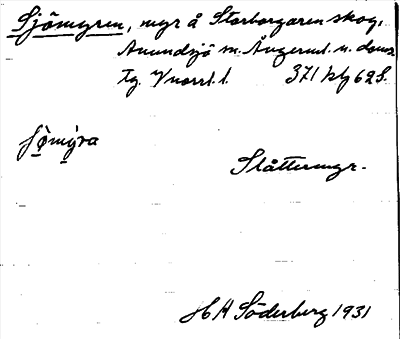 Sjömyren, myr å Storborgaren skog,
Anundsjö sn. Ångerml. n. doms.
tg. Vnorrl. l. 371 ktg 628.
sjømýra
Slåttermyr.
H H Söderberg 1931